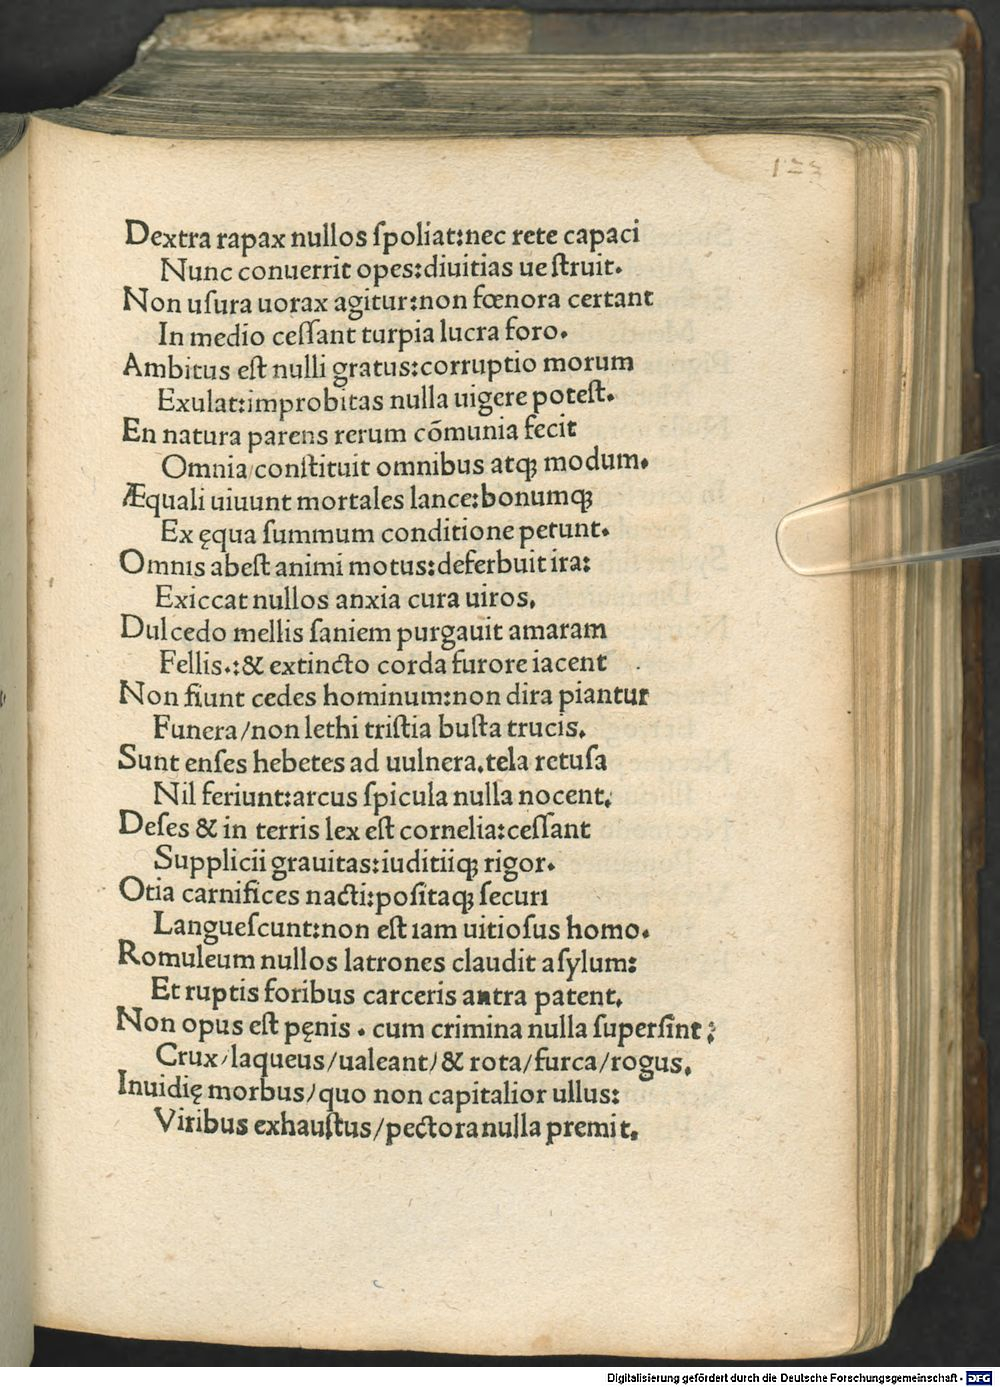 123
Dextra rapax nullos ſpoliat:nec rete capaci
Nunc conuerrit opes:diuitias ue ſtruit.
Non uſura uorax agitur:non fœnora certant
In medio ceſſant turpia lucra foro.
Ambitus eſt nulli gratus:corruptio morum
Exulat:improbitas nulla uigere poteſt.
En natura parens rerum cōmunia fecit
Omnia/conſtituit omnibus atqꝫ modum.
Æquali uiuunt mortales lance:bonumqꝫ
Ex ęqua ſummum conditione petunt.
Omnis abeſt animi motus:deferbuit ira:
Exiccat nullos anxia cura uiros.
Dulcedo mellis ſaniem purgauit amaram
Fellis.:& extincto corda furore iacent
Non fiunt cedes hominum:non dira piantur
Funera/non lethi triſtia buſta trucis.
Sunt enſes hebetes ad uulnera.tela retuſa
Nil feriunt:arcus ſpicula nulla nocent.
Deſes & in terris lex eſt cornelia:ceſſant
Supplicii grauitas:iuditiiqꝫ rigor.
Otia carnifices nacti:poſitaqꝫ ſecuri
Langueſcunt:non eſt iam uitioſus homo.
Romuleum nullos latrones claudit aſylum:
Et ruptis foribus carceris antra patent.
Non opus eſt pęnis . cum crimina nulla ſuperſint;
Crux/laqueus/ualeant/& rota/furca/rogus.
Inuidię morbus/quo non capitalior ullus:
Viribus exhauſtus/pectora nulla premit.
Digitalisierung gefördert durch die Deutsche Forschungsgemeinschaft - DFG